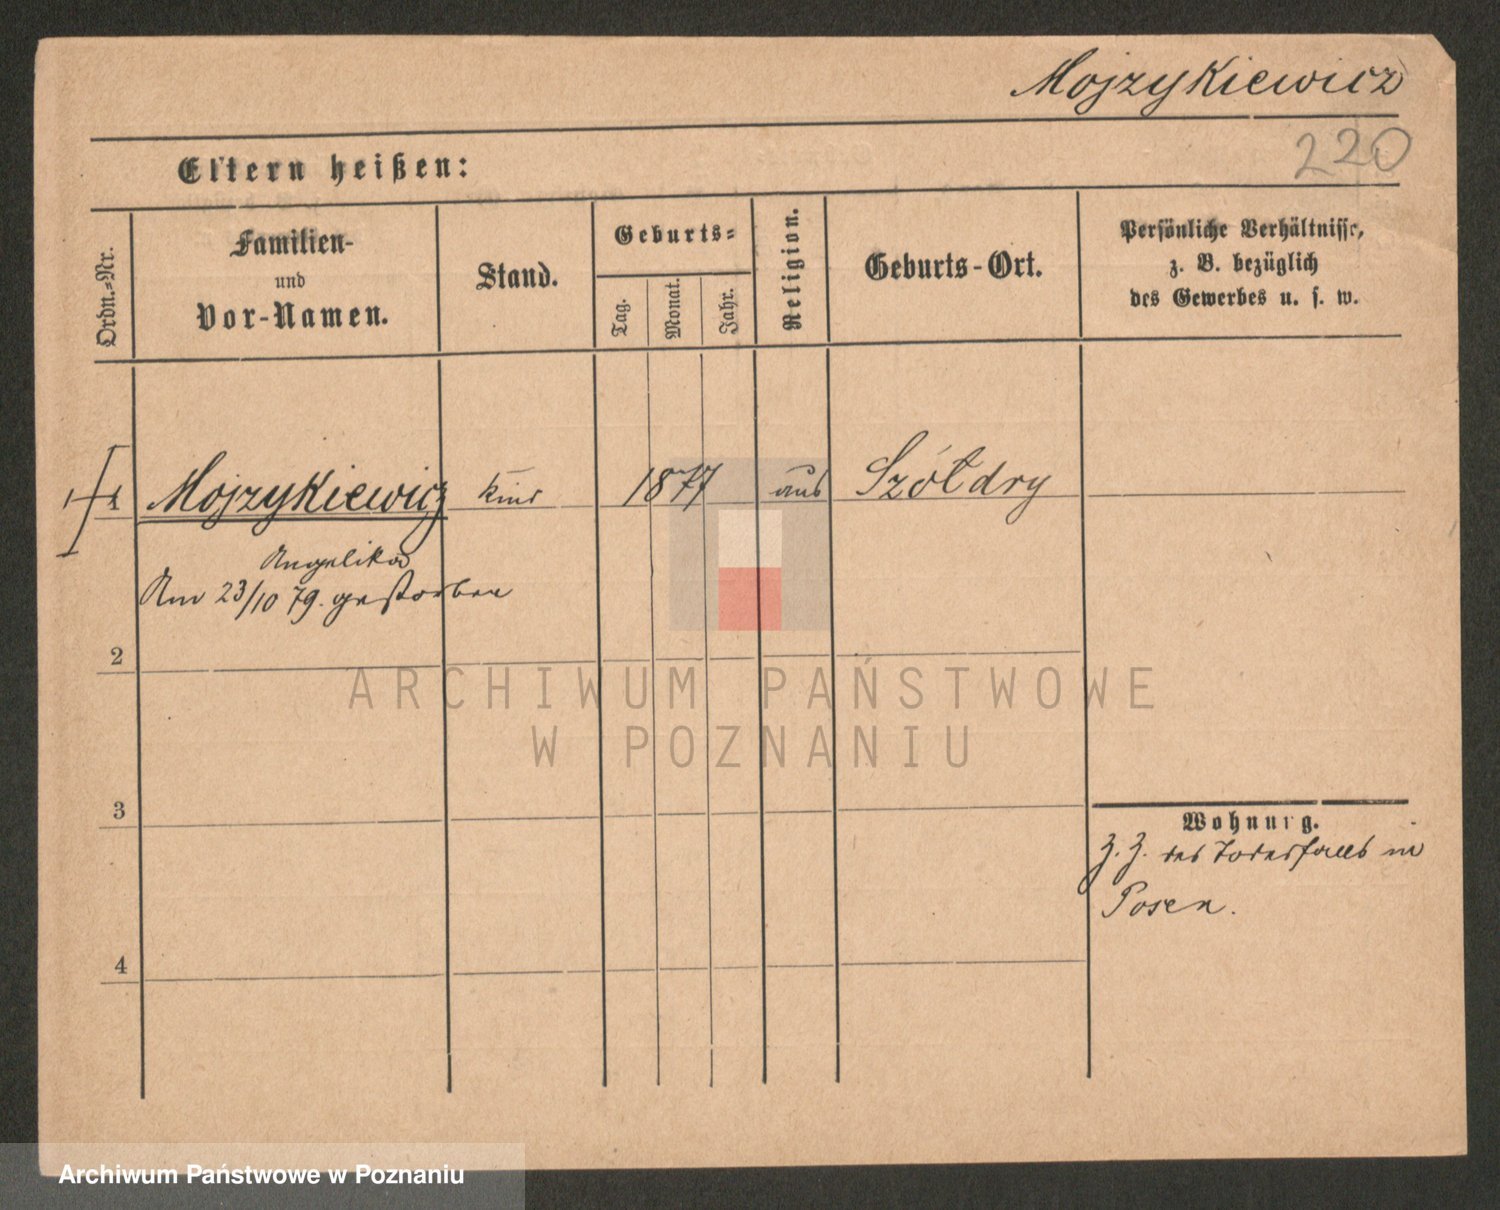 Mojzykiewicz
220
Eltern heißen:
Ordn.-Nr.
Familien-
und
Vor-Namen.
Stand.
Geburts-
Tag.
Monat.
Jahr.
Religion.
Geburts-Ort.
Persönliche Verhältnisse,
z. B. bezüglich
des Gewerbes u. s. w.
1 Mojzykiewicz Kind 1877 aus Szółdry
Angelika
Am 23/10 79. gestorben
2
ARCHIWUM PAŃSTWOWE
W POZNANIU
3
Wohnung.
Z. Z. des Todesfalls in
Posen.
4
Archiwum Państwowe w Poznaniu